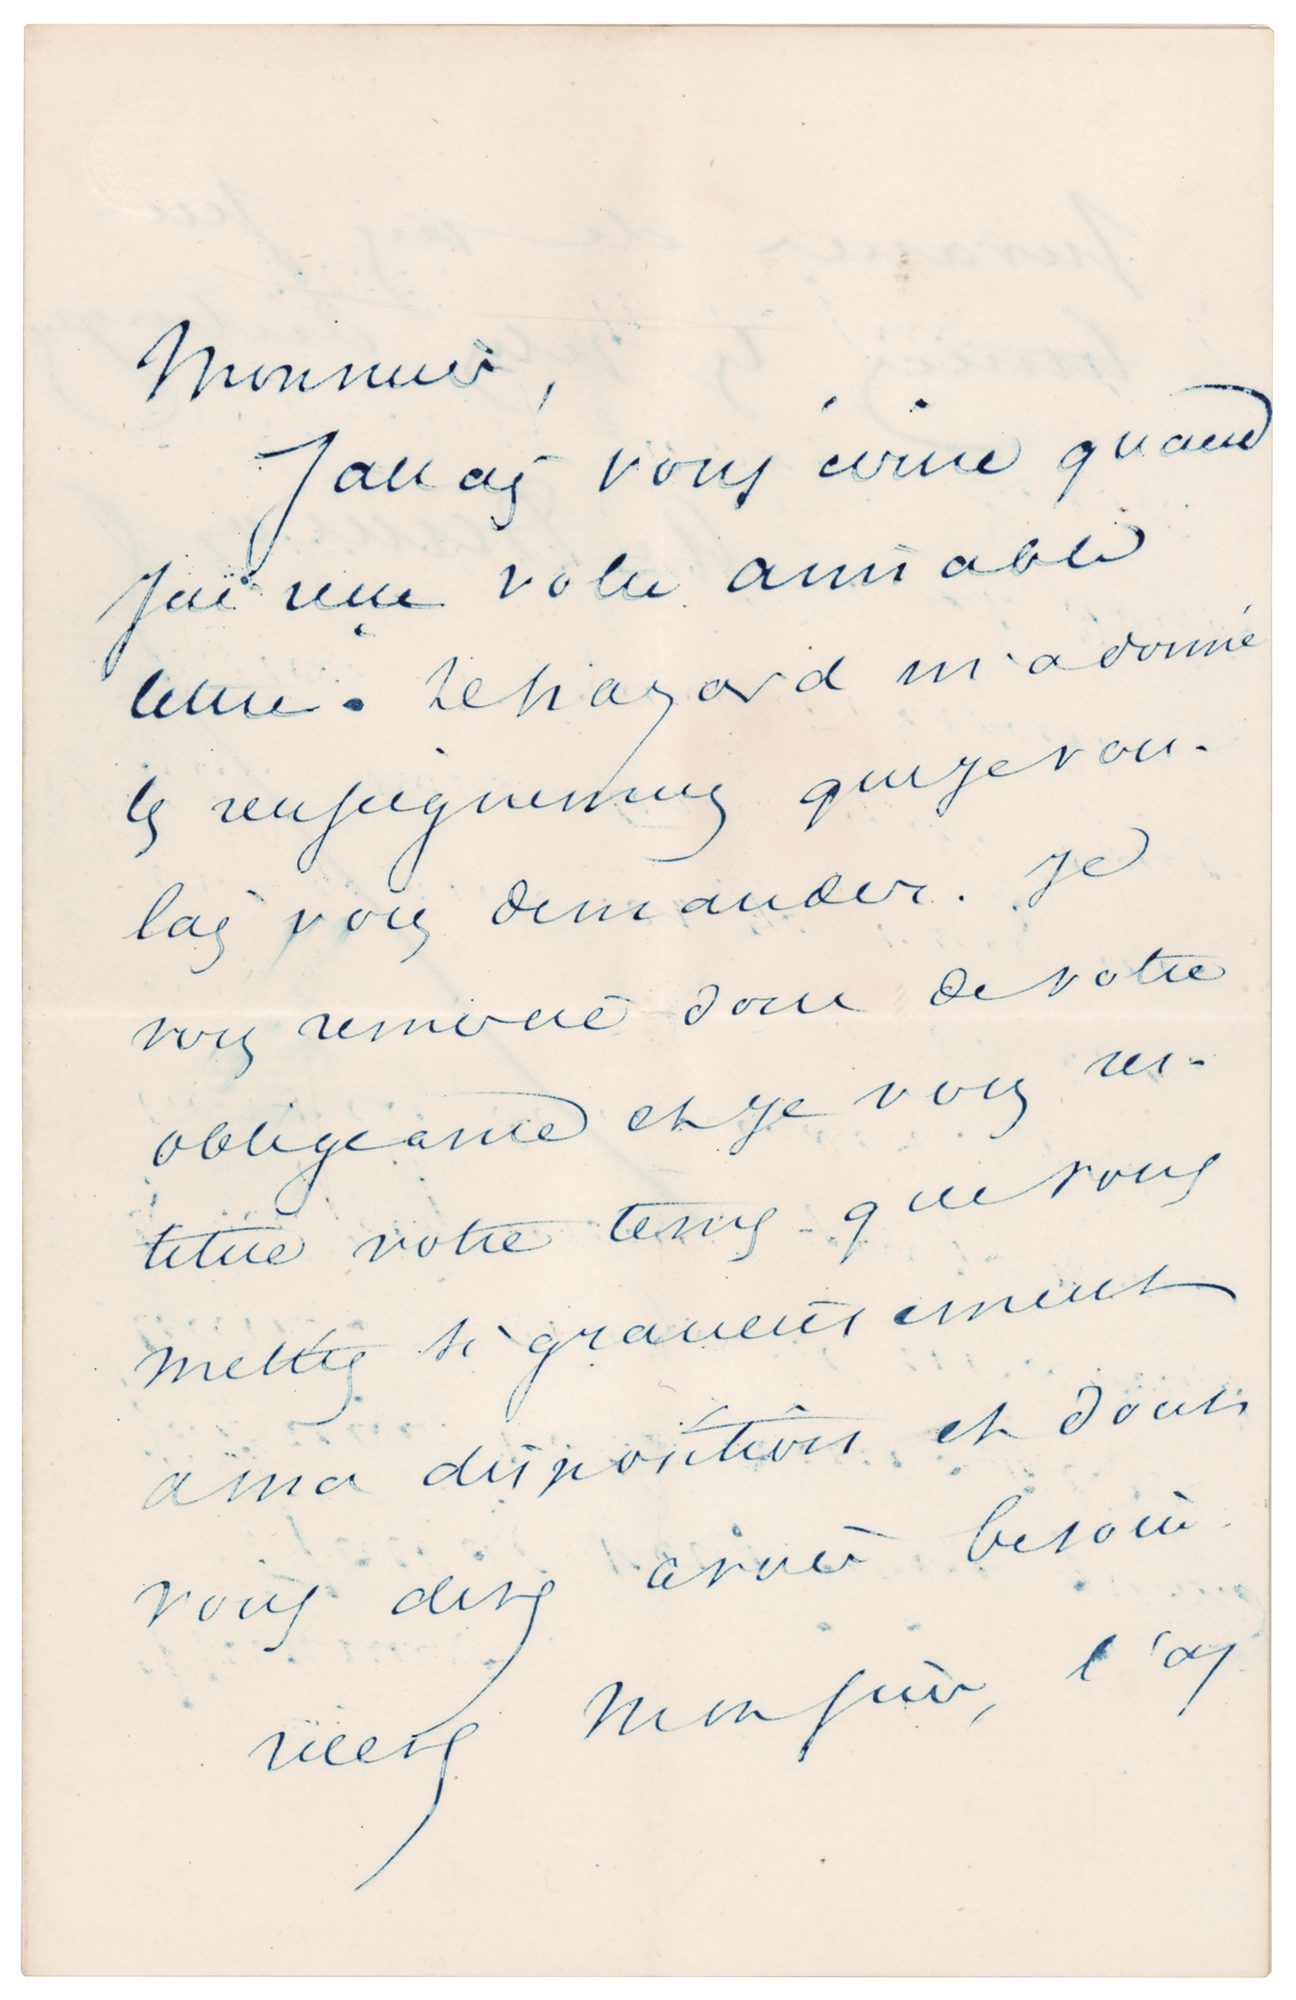 Monsieur,
J'allais vous écrire quand
j'ai reçu votre aimable
lettre. Le hazard m'a donné
les renseignements que je vou-
lais vous demander. Je
vous remercie donc de votre
obligeance et je vous res-
titue votre tems que vous
mettez si gracieusement
a ma disposition et dont
vous devez avoir besoin.
recevez Monsieur, l'as